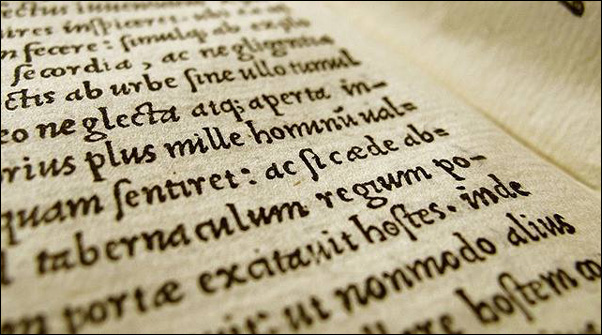 ectus
ires inspiceret.
m fecere: simulqȝ ab explo
secordia, ac negligentia
ctis ab urbe sine ullo tumul
eo neglecta atqȝ aperta in-
rius plus mille hominũ ual-
quam sentiret: ac si cæde ab-
tabernaculum regium po-
m portæ excitauit hostes. inde
ut nonmodo alius
hostem